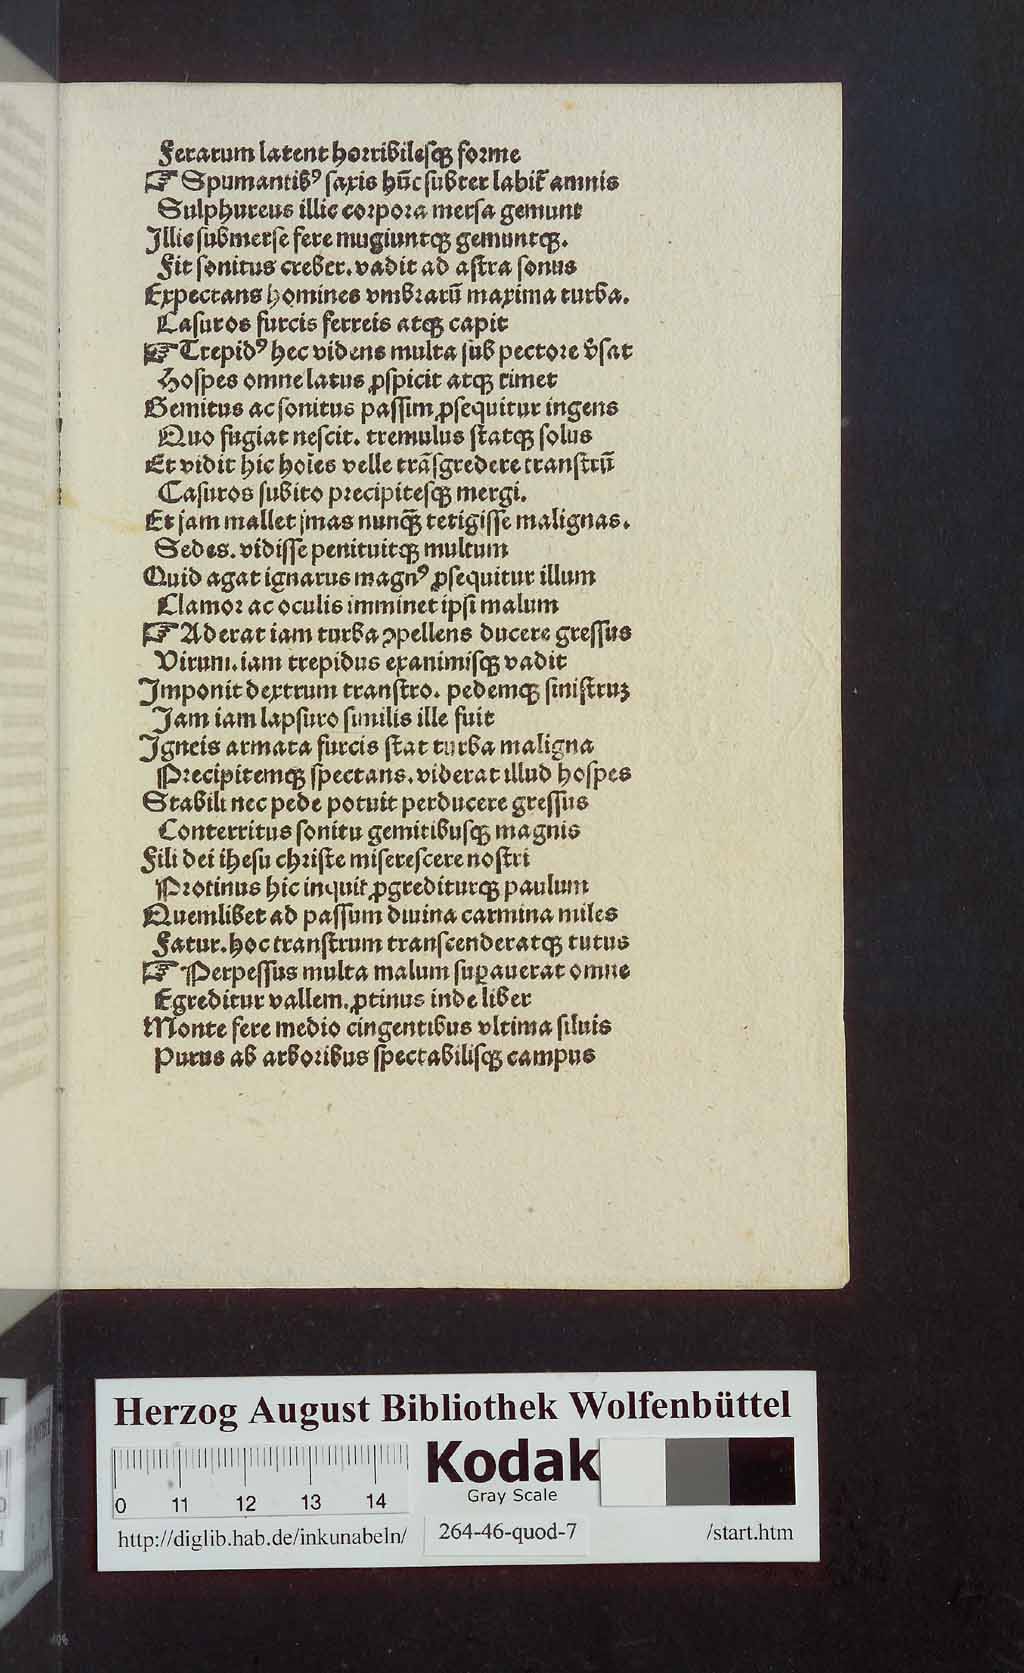 Ferarum latent horribilesqꝫ forme
☞ Spumantibꝰ saxis hūc subter labit᷑ amnis
Sulphureus illic corpora mersa gemunt
Illic submerse fere mugiuntqꝫ gemuntqꝫ.
Fit sonitus creber. vadit ad astra sonus
Expectans homines vmbrarū maxima turba.
Casuros furcis ferreis atqꝫ capit
☞ Trepidꝰ hec videns multa sub pectore v̓sat
Hospes omne latus ꝓspicit atqꝫ timet
Gemitus ac sonitus passim ꝓsequitur ingens
Quo fugiat nescit. tremulus statqꝫ solus
Et vidit hic hoīes velle trāsgredere transtrū
Casuros subito precipitesqꝫ mergi.
Et jam mallet jmas nunqꝫ̄ tetigisse malignas.
Sedes. vidisse penituitqꝫ multum
Quid agat ignarus magnꝰ ꝓsequitur illum
Clamor ac oculis imminet ipsi malum
☞ Aderat iam turba ꝯpellens ducere gressus
Virum. iam trepidus exanimisqꝫ vadit
Imponit dextrum transtro. pedemqꝫ sinistruꝫ
Jam iam lapsuro similis ille fuit
Igneis armata furcis stat turba maligna
Precipitemqꝫ spectans. viderat illud hospes
Stabili nec pede potuit perducere gressus
Conterritus sonitu gemitibusqꝫ magnis
Fili dei ihesu christe miserescere nostri
Protinus hic inquit ꝓgrediturqꝫ paulum
Quemlibet ad passum diuina carmina miles
Fatur. hoc transtrum transcenderatqꝫ tutus
☞ Perpessus multa malum suꝑauerat omne
Egreditur vallem. ꝓtinus inde liber
Monte fere medio cingentibus vltima siluis
Purus ab arboribus spectabilisqꝫ campus
Herzog August Bibliothek Wolfenbüttel
Kodak
Gray Scale
0 11 12 13 14
http://diglib.hab.de/inkunabeln/ 264-46-quod-7 /start.htm